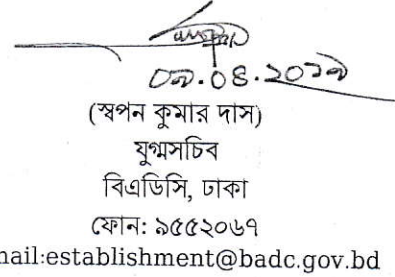 ০৯.০৪.২০১৯
(স্বপন কুমার দাস)
যুগ্মসচিব
বিএডিসি, ঢাকা
ফোন: ৯৫৫২০৬৭
mail:establishment@badc.gov.bd